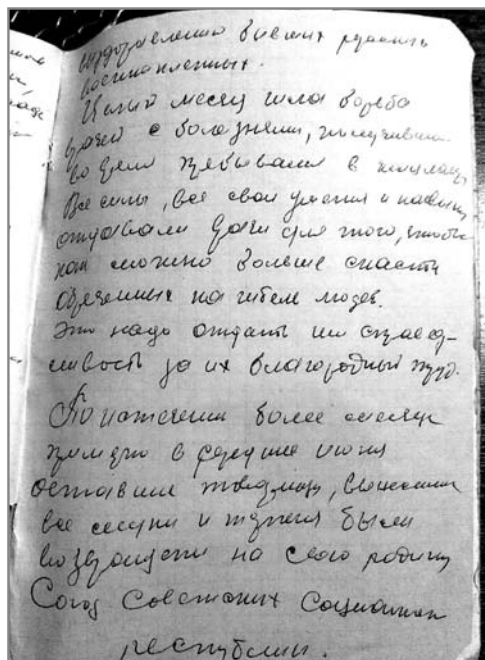 оздоровлению бывших русских
военнопленных.
Целый месяц шла борьба
врачей с болезнями, полученными
во время пребывания в концлаг.
Все силы, все свои умения и навыки
отдавали врачи для того, чтобы
как можно больше спасти
обреченных на гибель людей.
Это надо отдать им справед-
ливость за их благородный труд.
По истечении более месяца
примерно в середине июня
оставшие, вынесшие
все и были
возвращены на свою родину
Союз Советских Социалистич
республик.